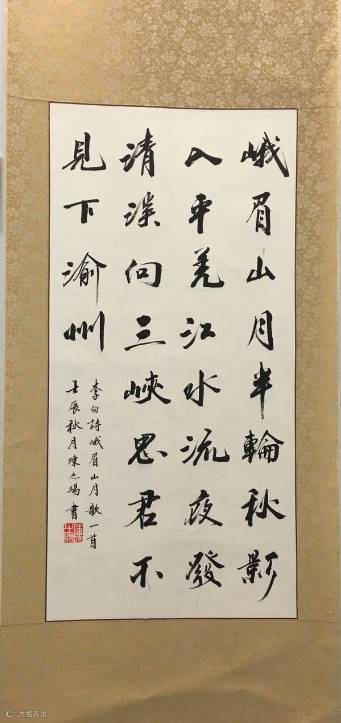 峨眉山月半輪秋影
入平羌江水流夜發
清溪向三峽思君不
見下渝州
李白詩峨眉山月歌一首
壬辰秋月陳之暘書